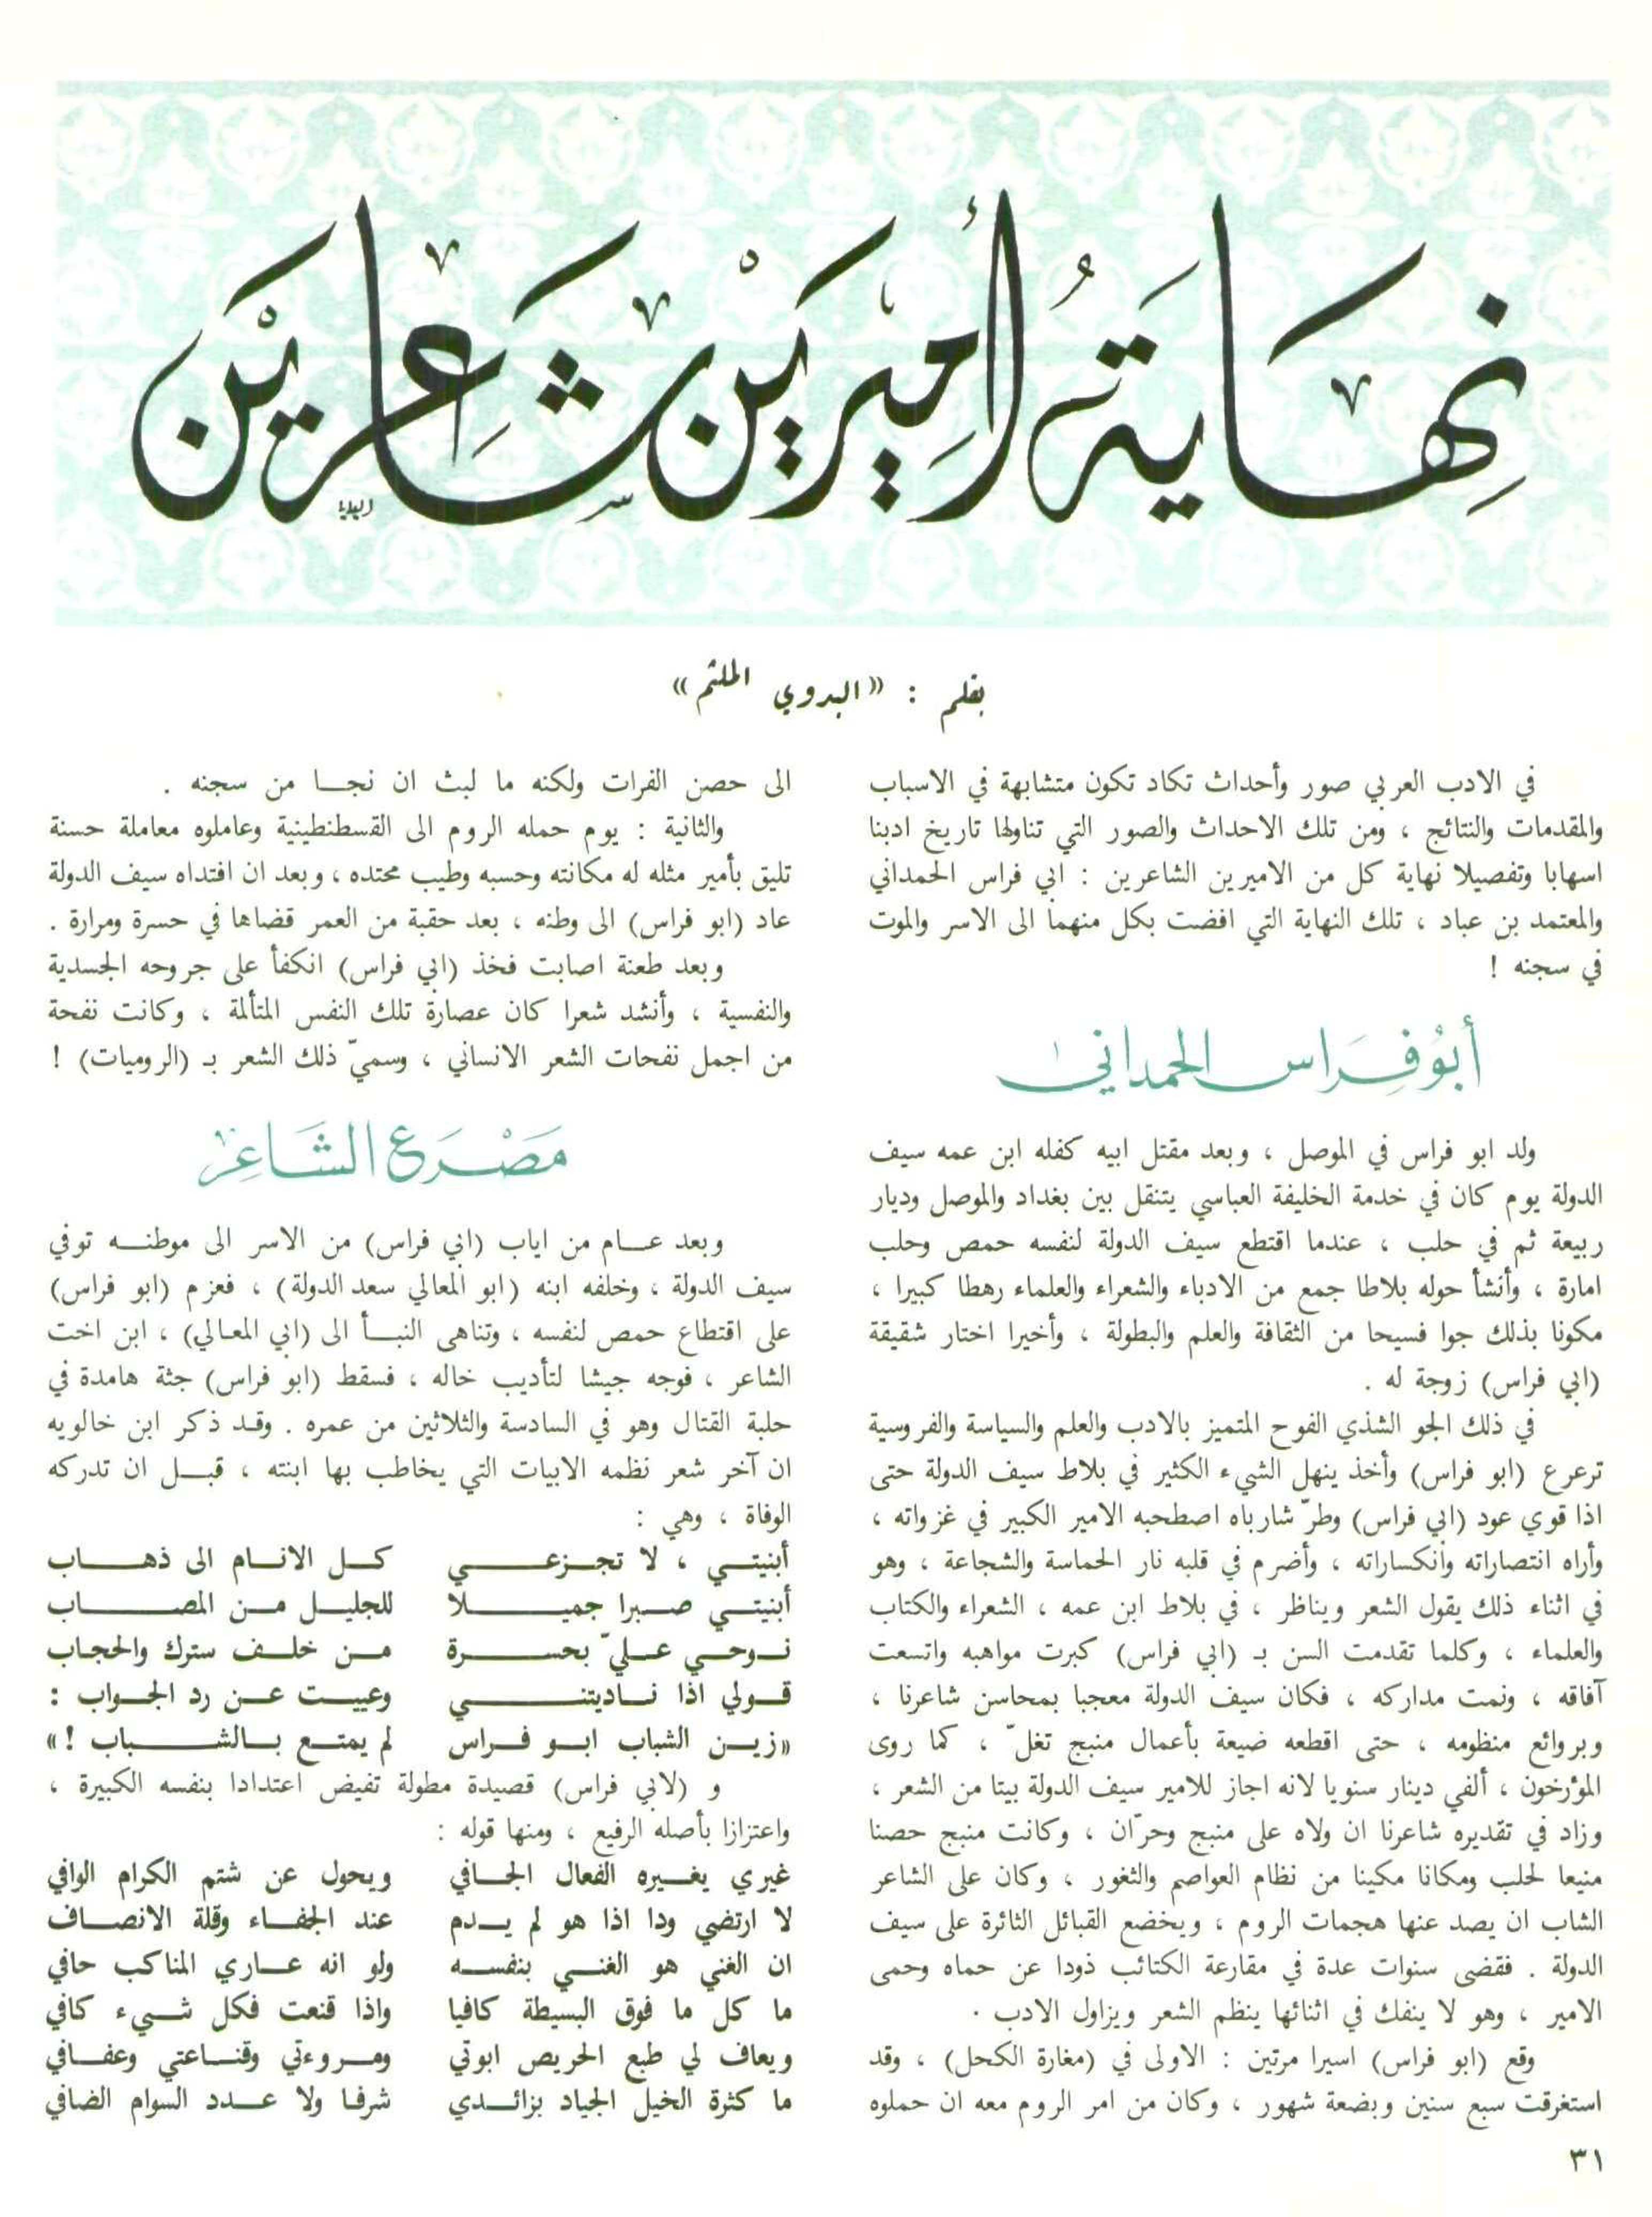 نِهَايَةُ أَمِيرَيْنِ شَاعِرَيْن
بقلم : «البدوي الملثم»
في الادب العربي صور وأحداث تكاد تكون متشابهة في الاسباب
والمقدمات والنتائج ، ومن تلك الاحداث والصور التي تناولها تاريخ ادبنا
اسهابا وتفصيلا نهاية كل من الاميرين الشاعرين : ابي فراس الحمداني
والمعتمد بن عباد ، تلك النهاية التي افضت بكل منهما الى الاسر والموت
في سجنه !
أبُو فِرَاس الحمداني
ولد ابو فراس في الموصل ، وبعد مقتل ابيه كفله ابن عمه سيف
الدولة يوم كان في خدمة الخليفة العباسي يتنقل بين بغداد والموصل وديار
ربيعة ثم في حلب ، عندما اقتطع سيف الدولة لنفسه حمص وحلب
امارة ، وأنشأ حوله بلاطا جمع من الادباء والشعراء والعلماء رهطا كبيرا ،
مكونا بذلك جوا فسيحا من الثقافة والعلم والبطولة ، وأخيرا اختار شقيقة
(ابي فراس) زوجة له .
في ذلك الجو الشذي الفوح المتميز بالادب والعلم والسياسة والفروسية
ترعرع (ابو فراس) وأخذ ينهل الشيء الكثير في بلاط سيف الدولة حتى
اذا قوي عود (ابي فراس) وطرّ شارباه اصطحبه الامير الكبير في غزواته ،
وأراه انتصاراته وانكساراته ، وأضرم في قلبه نار الحماسة والشجاعة ، وهو
في اثناء ذلك يقول الشعر ويناظر ، في بلاط ابن عمه ، الشعراء والكتاب
والعلماء ، وكلما تقدمت السن بـ (ابي فراس) كبرت مواهبه واتسعت
آفاقه ، ونمت مداركه ، فكان سيف الدولة معجبا بمحاسن شاعرنا ،
وبروائع منظومه ، حتى اقطعه ضيعة بأعمال منبج تغلّ ، كما روى
المؤرخون ، ألفي دينار سنويا لانه اجاز للامير سيف الدولة بيتا من الشعر ،
وزاد في تقديره شاعرنا ان ولاه على منبج وحرّان ، وكانت منبج حصنا
منيعا لحلب ومكانا مكينا من نظام العواصم والثغور ، وكان على الشاعر
الشاب ان يصد عنها هجمات الروم ، ويخضع القبائل الثائرة على سيف
الدولة . فقضى سنوات عدة في مقارعة الكتائب ذودا عن حماه وحمى
الامير ، وهو لا ينفك في اثنائها ينظم الشعر ويزاول الادب .
وقع (ابو فراس) اسيرا مرتين : الاولى في (مغارة الكحل) ، وقد
استغرقت سبع سنين وبضعة شهور ، وكان من امر الروم معه ان حملوه
الى حصن الفرات ولكنه ما لبث ان نجا من سجنه .
والثانية : يوم حمله الروم الى القسطنطينية وعاملوه معاملة حسنة
تليق بأمير مثله له مكانته وحسبه وطيب محتده ، وبعد ان افتداه سيف الدولة
عاد (ابو فراس) الى وطنه ، بعد حقبة من العمر قضاها في حسرة ومرارة .
وبعد طعنة اصابت فخذ (ابي فراس) انكفأ على جروحه الجسدية
والنفسية ، وأنشد شعرا كان عصارة تلك النفس المتألمة ، وكانت نفحة
من اجمل نفحات الشعر الانساني ، وسميّ ذلك الشعر بـ (الروميات) !
مَصْرَع الشَاعِر
وبعد عام من اياب (ابي فراس) من الاسر الى موطنه توفي
سيف الدولة ، وخلفه ابنه (ابو المعالي سعد الدولة) ، فعزم (ابو فراس)
على اقتطاع حمص لنفسه ، وتناهى النبأ الى (ابي المعالي) ، ابن اخت
الشاعر ، فوجه جيشا لتأديب خاله ، فسقط (ابو فراس) جثة هامدة في
حلبة القتال وهو في السادسة والثلاثين من عمره . وقد ذكر ابن خالويه
ان آخر شعر نظمه الابيات التي يخاطب بها ابنته ، قبل ان تدركه
الوفاة ، وهي :
أبنيتي ، لا تجزعي كل الانام الى ذهاب
أبنيتي صبرا جميلا للجليل من المصاب
نوحي عليّ بحسرة من خلف سترك والحجاب
قولي اذا ناديتني وعييت عن رد الجواب :
«زين الشباب ابو فراس لم يمتع بالشباب !»
و (لابي فراس) قصيدة مطولة تفيض اعتدادا بنفسه الكبيرة ،
واعتزازا بأصله الرفيع ، ومنها قوله :
غيري يغيره الفعال الجافي ويحول عن شتم الكرام الوافي
لا ارتضي ودا اذا هو لم يدم عند الجفاء وقلة الانصاف
ان الغني هو الغني بنفسه ولو انه عاري المناكب حافي
ما كل ما فوق البسيطة كافيا واذا قنعت فكل شيء كافي
ويعاف لي طبع الحريص ابوتي ومروءتي وقناعتي وعفافي
ما كثرة الخيل الجياد بزائدي شرفا ولا عدد السوام الضافي
٣١